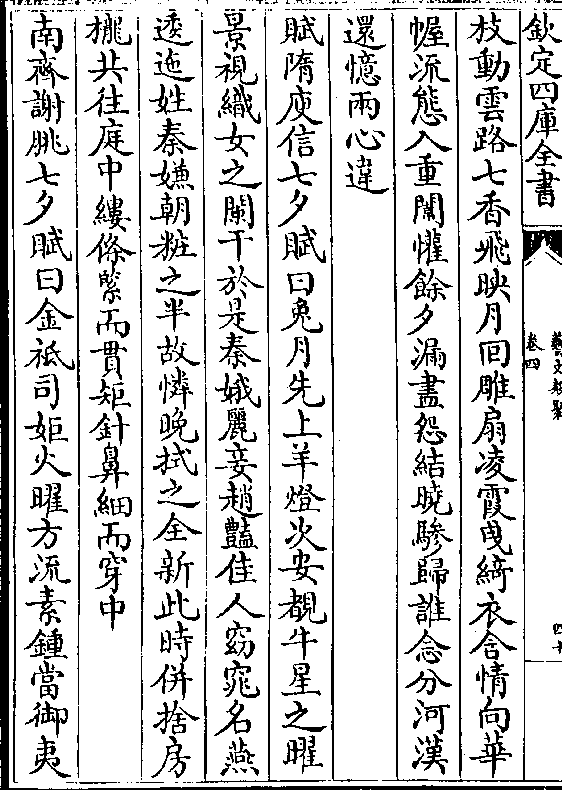 欽定四庫全書
藝文類聚
卷四
四十
枝動雲路七香飛映月回雕扇凌霞曳綺衣含情向華
幄流態入重闈懽餘夕漏盡怨結曉驂歸誰念分河漢
還憶兩心違
賦隋庾信七夕賦曰兔月先上羊燈次安覩牛星之曜
景視織女之闌干於是秦娥麗妾趙豔佳人窈窕名燕
逶迤姓秦嫌朝粧之半故憐晚拭之全新此時併捨房
櫳共往庭中縷條緊而貫矩針鼻細而穿中
南齊謝朓七夕賦曰金祗司矩火曜方流素鍾當御夷